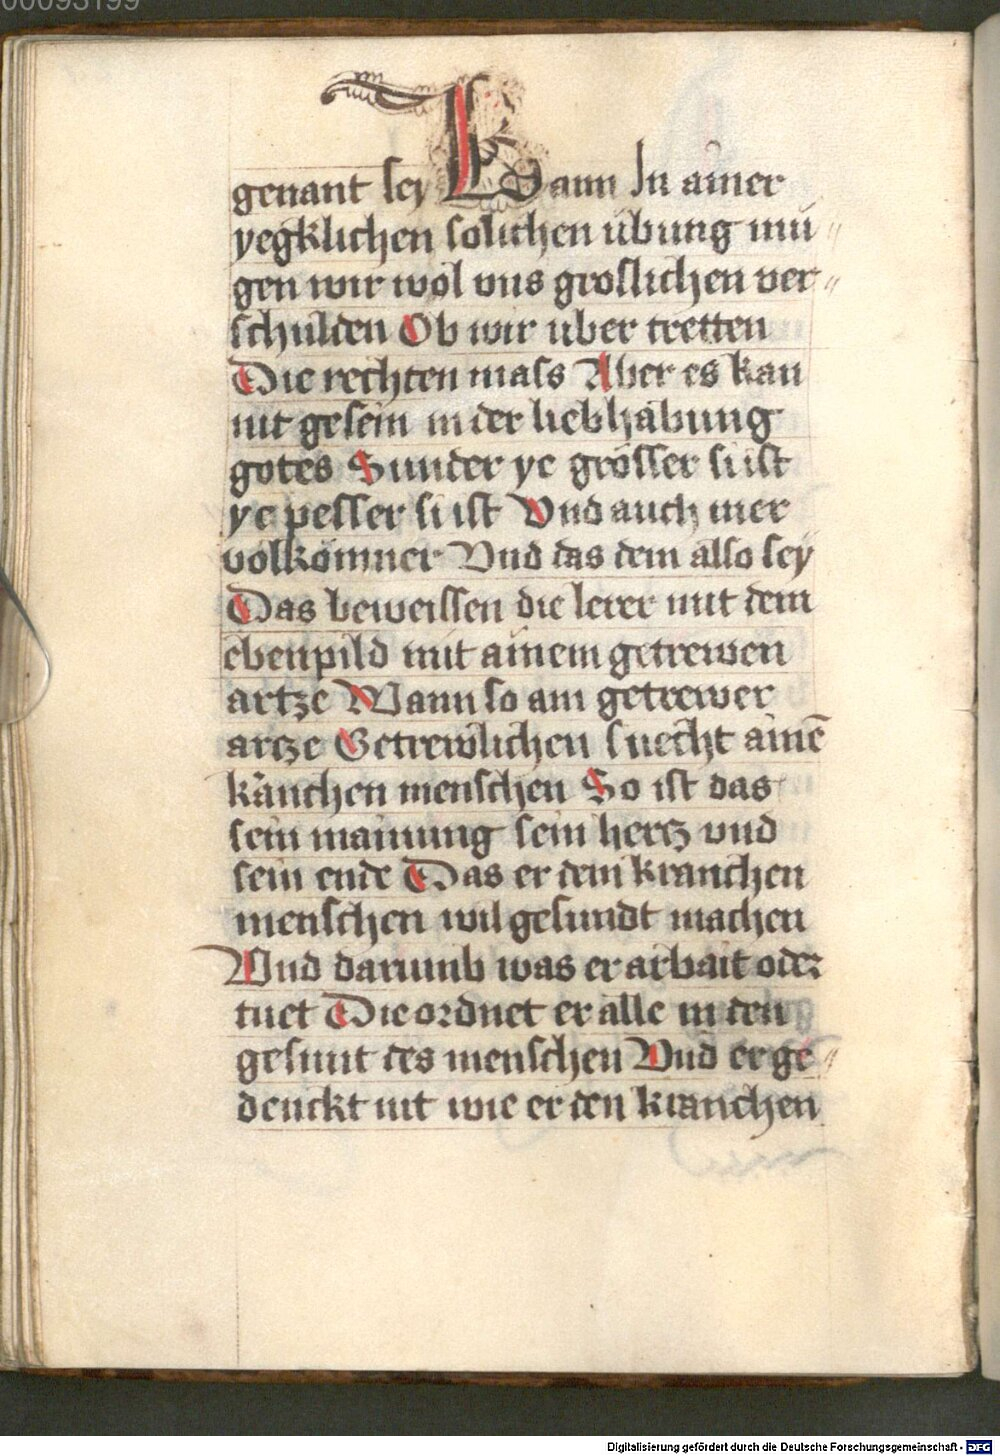 00093199
genant sey Wann In ainer
yegklichen solichen ubung mu〃
gen wir wol vns groslichen ver〃
schulden Ob wir uber tretten
Die rechten mass Aber es kan
nit gesein in der liebhabung
gotes Sunder ye grösser si ist
ye pesser si ist Vnd auch mer
volkömner Vnd das dem also sey
Das beweissen die lerer mit dem
ebenpild mit ainem getrewen
artze Wann so ain getrewer
artze Getrewlichen suecht ainē
kranchen menschen So ist das
sein mainung sein hertz vnd
sein ende Das er dem kranchen
menschen wil gesundt machen
Vnd darumb was er arbait oder
tuet Die ordnet er alle in den
gesunt des menschen Vnd er ge〃
denckt nit wie er den kranchen
Digitalisierung gefördert durch die Deutsche Forschungsgemeinschaft - DFG